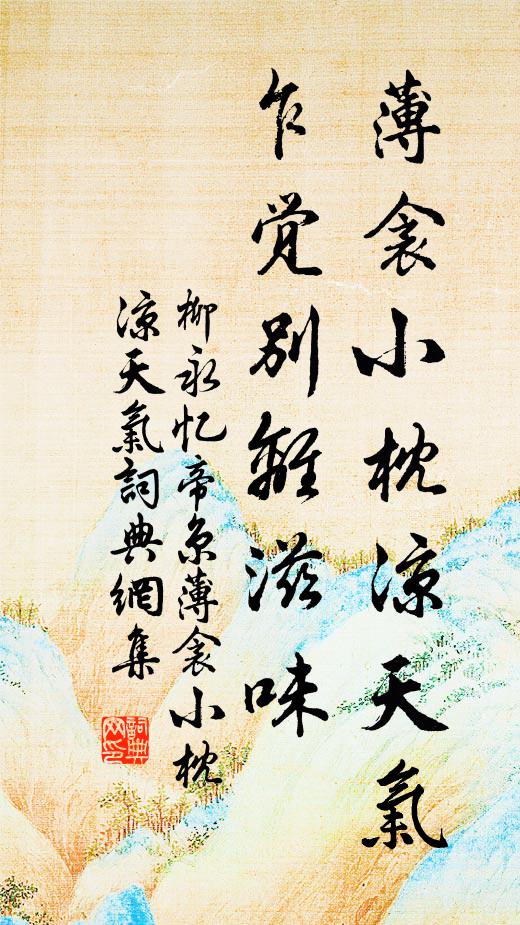 薄衾小枕凉天氣
乍觉別離滋味
柳永忆帝京薄衾小枕
凉天氣詞典網集
詞典
网印